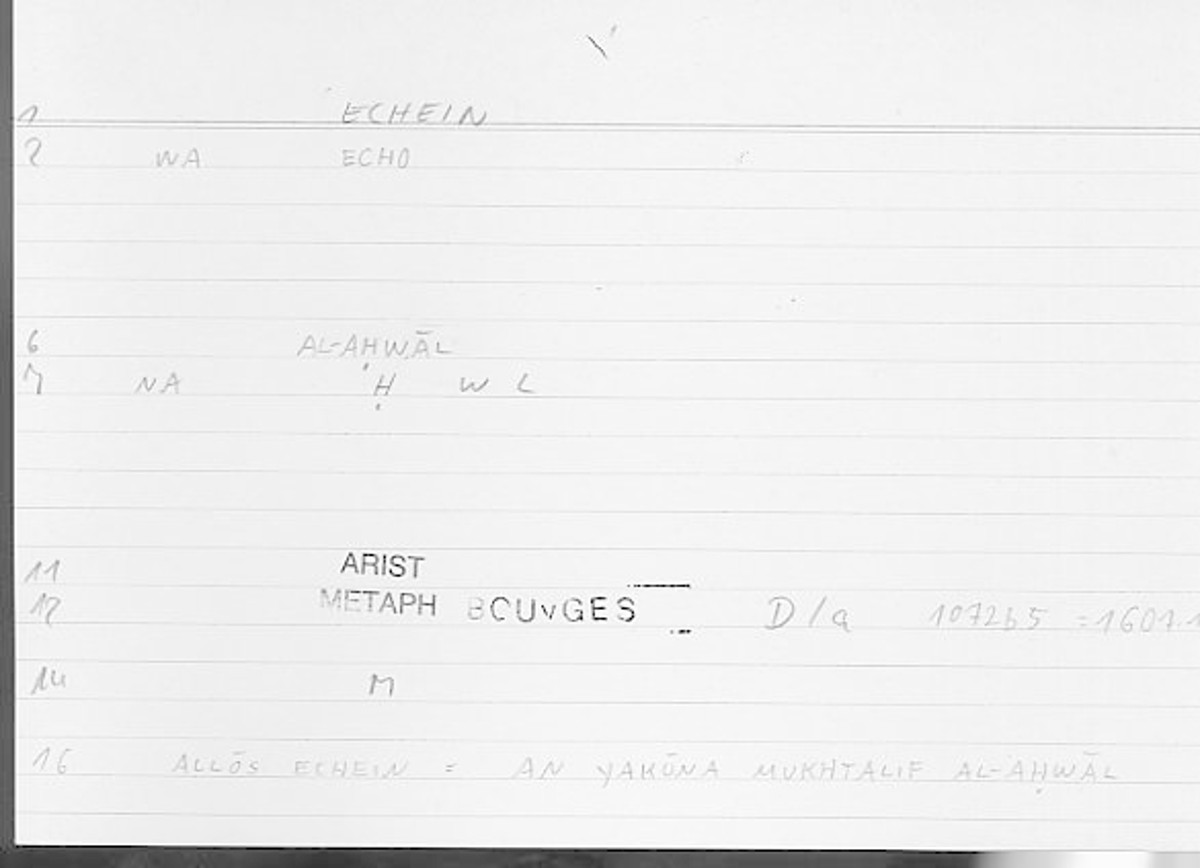 1 ECHEIN
2 WA ECHO
6 AL-AḤWĀL
7 NA Ḥ W L
11 ARIST
12 METAPH BOUYGES D/a 1072b5 =1607.1
14 M
16 ALLŌS ECHEIN = AN YAKŪNA MUKHTALIF AL-AḤWĀL